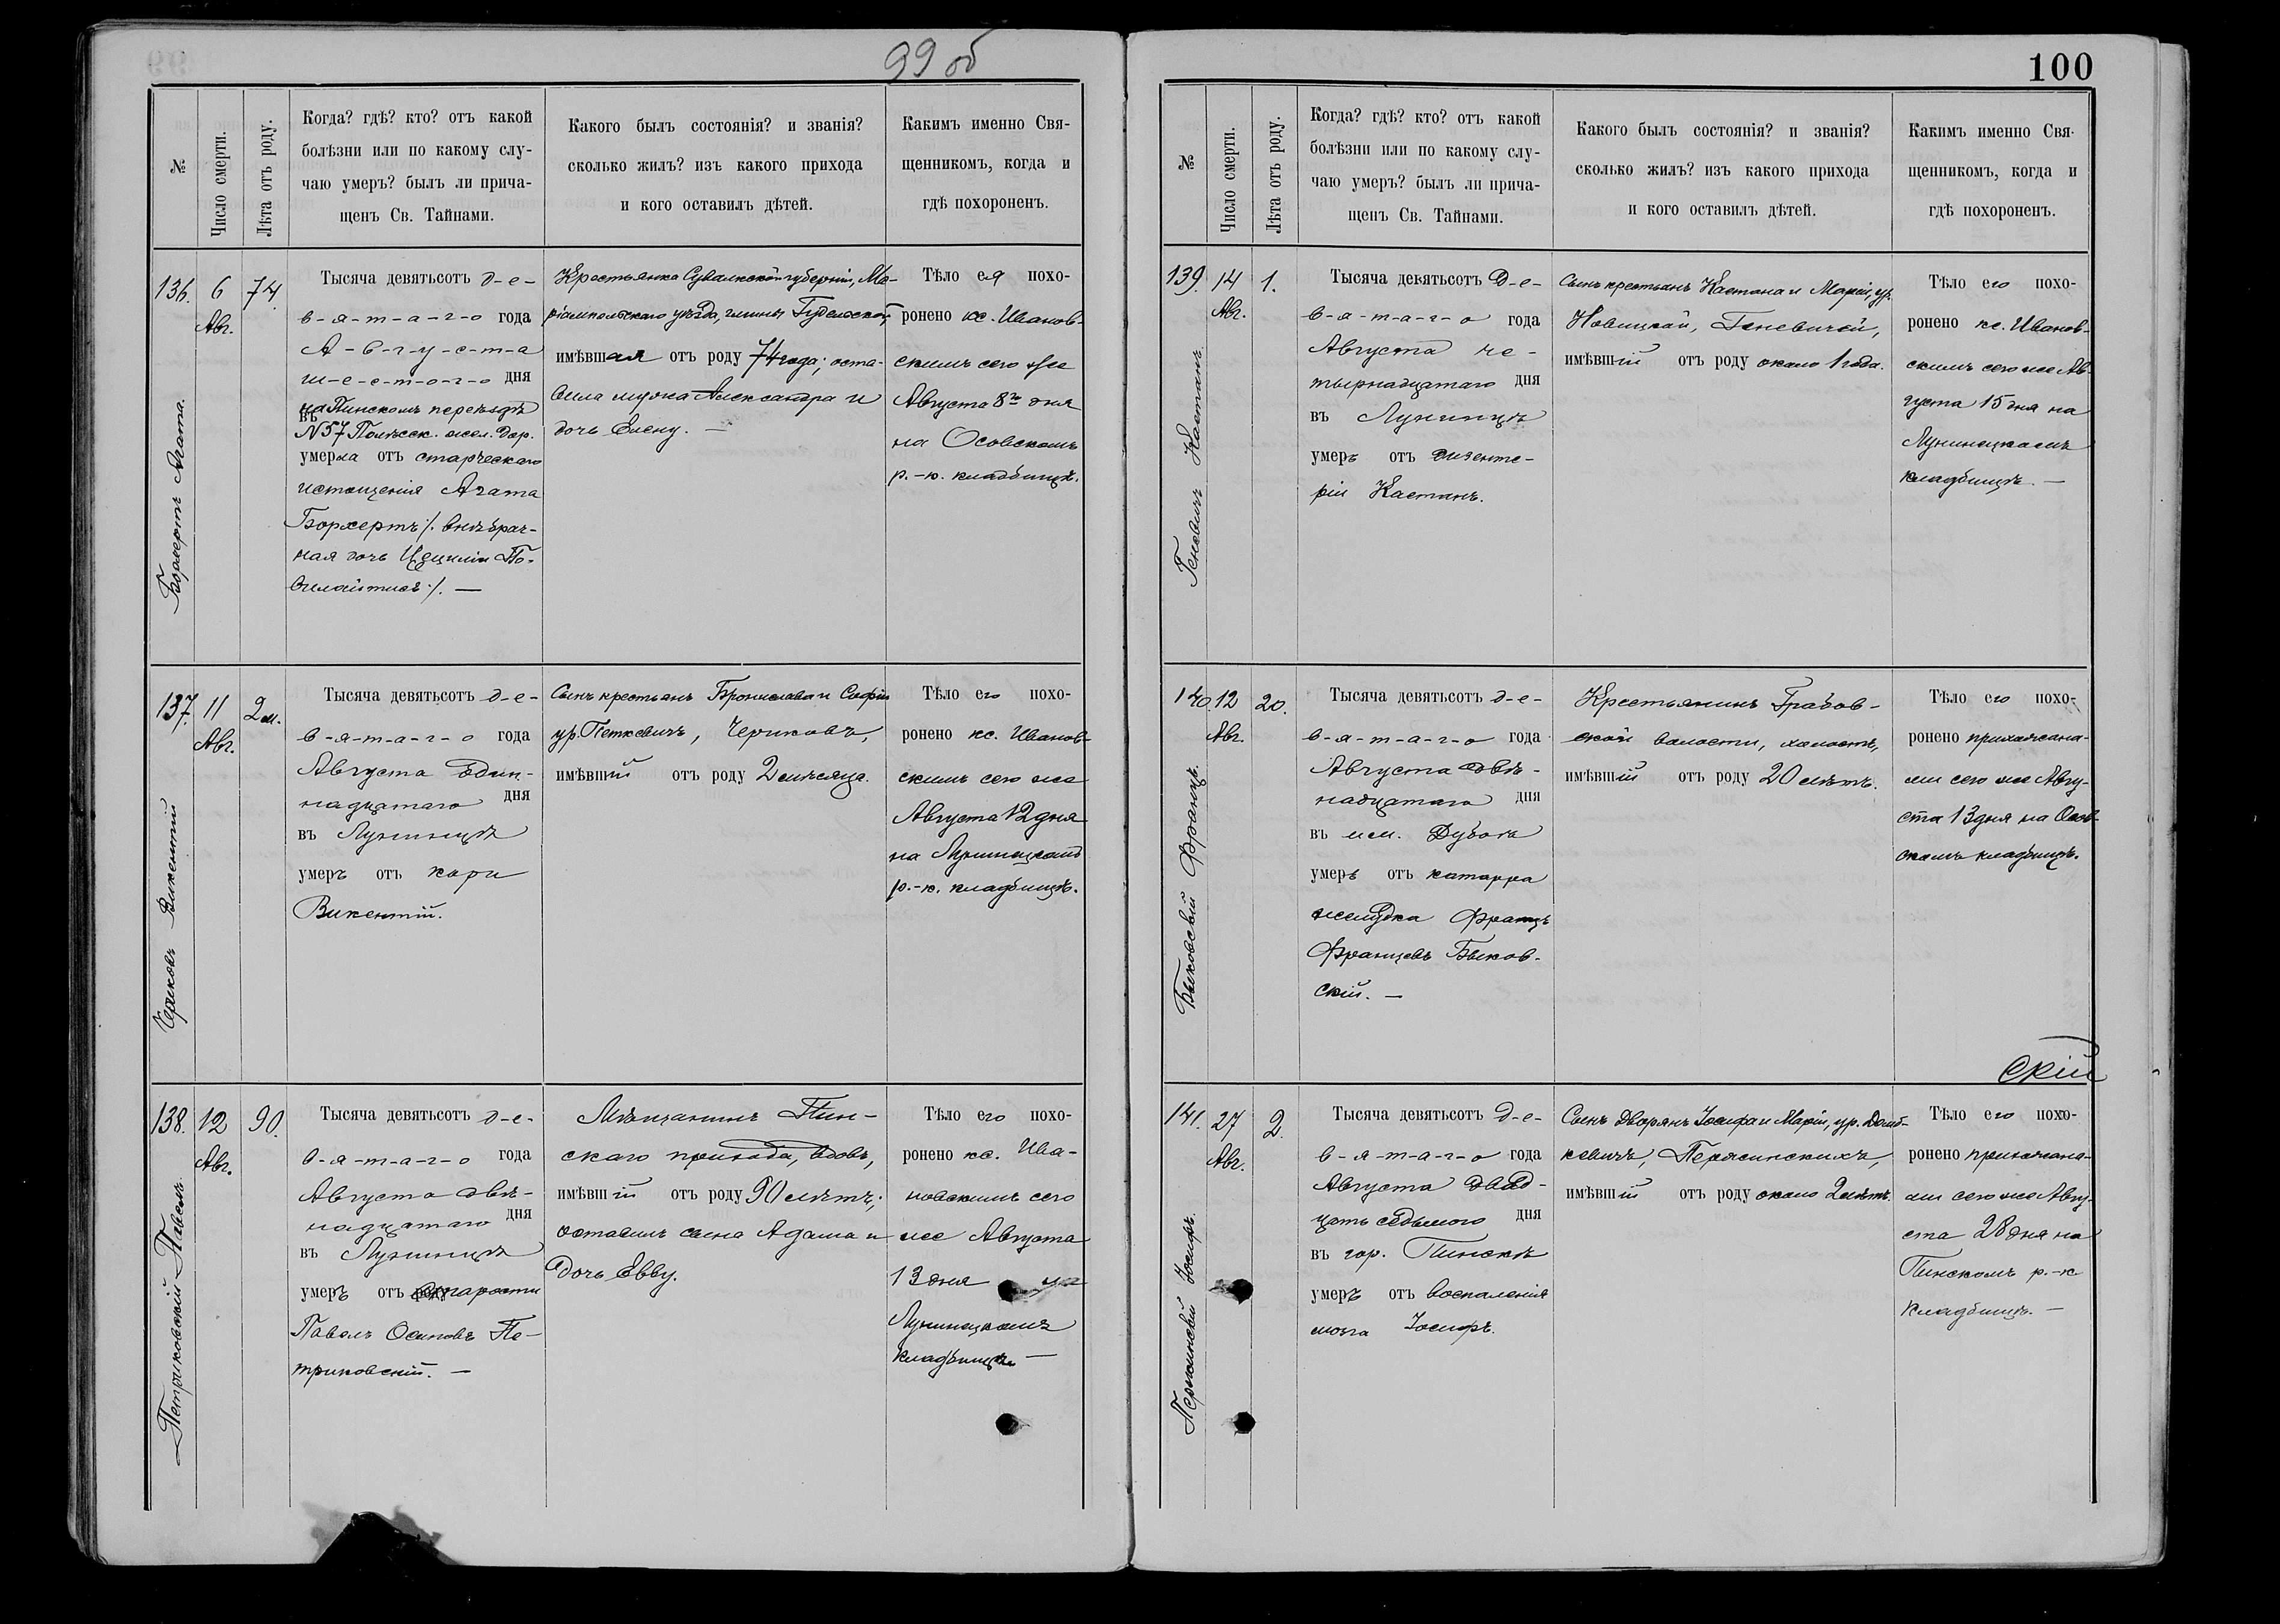 99 об
№
Число смерти.
Лѣта отъ роду.
Когда? гдѣ? кто? отъ какой
болѣзни или по какому слу-
чаю умеръ? былъ ли прича-
щенъ Св. Тайнами.
Какого былъ состоянія? и званія?
сколько жилъ? изъ какого прихода
и кого оставилъ дѣтей.
Какимъ именно Свя-
щенникомъ, когда и
гдѣ похороненъ.
136.
6
Авг.
74.
Агата.
Тысяча девятьсотъ д-е-
в-я-т-а-г-о года
А-в-г-у-с-т-а
ш-е-с-т-о-г-о дня
въ на Пинскомъ переѣздѣ
N 57 Полѣсск. жел. дор.
умерла отъ старческаго
истощенія Агата
Борхертъ /. внѣбрач-
ная дочь Цециліи По-
вилайтисъ ./. —
Крестьянка Сувалкской губерніи, Ма-
ріампольскаго уѣзда, гмины
имѣвшая отъ роду 74 года; оста-
вила мужа Александра и
дочь Елену. —
Тѣло ея похо-
ронено кс. Иванов-
скимъ сего же
Августа 8го дня
на Осовскомъ
р.-к. кладбищѣ.
137.
11
Авг.
2 м.
Чериковъ Викентій
Тысяча девятьсотъ д-е-
в-я-т-а-г-о года
Августа един-
надцатаго дня
въ Лунинцѣ
умеръ отъ кори
Викентій.
Сынъ крестьянъ Бронислава и Софіи
ур. Петкевичъ, Чериковъ,
имѣвшій отъ роду 2 мѣсяца.
Тѣло его похо-
ронено кс. Иванов-
скимъ сего же
Августа 12 дня
на Лунинецкомъ
р.-к. кладбищѣ.
138.
12
Авг.
90.
Петриковскій Павелъ
Тысяча девятьсотъ д-е-
в-я-т-а-г-о года
Августа двѣ-
надцатаго дня
въ Лунинцѣ
умеръ отъ старости
Павелъ Осиповъ Пе-
триковскій. —
Мѣщанинъ Пин-
скаго прихода, вдовъ,
имѣвшій отъ роду 90 лѣтъ;
оставилъ сына Адама и
дочь Евву.
Тѣло его похо-
ронено кс. Ива-
новскимъ сего
же Августа
13 дня на
Лунинецкомъ
кладбищѣ —
100
№
Число смерти.
Лѣта отъ роду.
Когда? гдѣ? кто? отъ какой
болѣзни или по какому слу-
чаю умеръ? былъ ли прича-
щенъ Св. Тайнами.
Какого былъ состоянія? и званія?
сколько жилъ? изъ какого прихода
и кого оставилъ дѣтей.
Какимъ именно Свя-
щенникомъ, когда и
гдѣ похороненъ.
139.
14
Авг.
1.
Геневичъ Каетанъ.
Тысяча девятьсотъ д-е-
в-я-т-а-г-о года
Августа че-
тырнадцатаго дня
въ Лунинцѣ
умеръ отъ дизенте-
ріи Каетанъ.
Сынъ крестьянъ Каетана и Маріи, ур.
Новицкой, Геневичей,
имѣвшій отъ роду около 1 года.
Тѣло его похо-
ронено кс. Иванов-
скимъ сего же Ав-
густа 15 дня на
Лунинецкомъ
кладбищѣ. —
140.
12
Авг.
20.
Быковскій Францъ.
Тысяча девятьсотъ д-е-
в-я-т-а-г-о года
Августа двѣ-
надцатаго дня
въ им. Дубоѣ
умеръ отъ катарра
желудка Францъ
Францевъ Быков-
скій. —
Крестьянинъ Грабов-
ской волости, холостъ,
имѣвшій отъ роду 20 лѣтъ.
Тѣло его похо-
ронено прихожана-
ми сего же Авгу-
ста 13 дня на Осов-
скомъ кладбищѣ.
скій
141.
27
Авг.
2.
Іосифъ.
Тысяча девятьсотъ д-е-
в-я-т-а-г-о года
Августа двад-
цать седьмого дня
въ гор. Пинскѣ
умеръ отъ воспаленія
мозга Іосифъ.
Сынъ дворянъ Іосифа и Маріи, ур. Домб-
кевичъ,
имѣвшій отъ роду около 2 лѣтъ.
Тѣло его похо-
ронено прихожана-
ми сего же Авгу-
ста 28 дня на
Пинскомъ р.-к
кладбищѣ. —